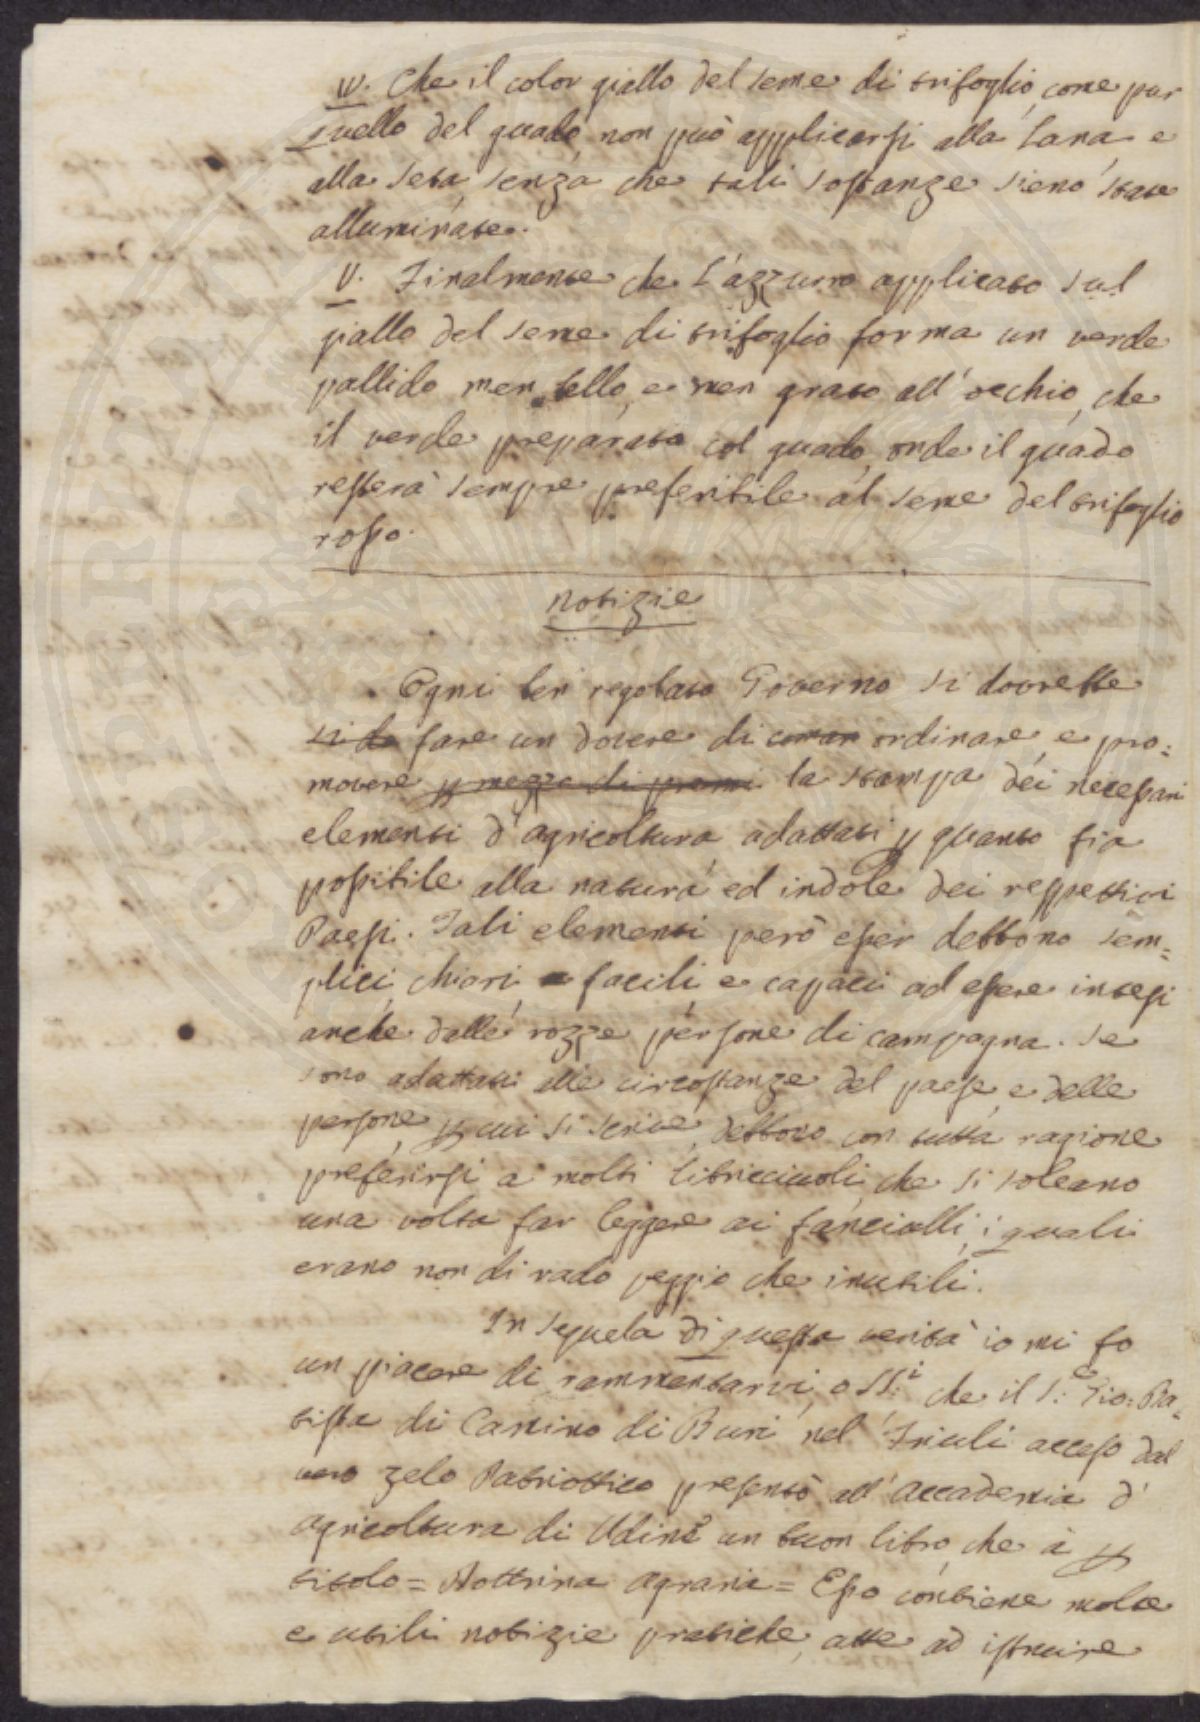 IV. Che il color giallo del seme di trifoglio, come pur
quello del guado non può applicarsi alla Lana e
alla Seta senza che tali sostanze sieno state
alluminate.
V. Finalmente che l'azzurro applicato sul
giallo del seme di trifoglio forma un verde
pallido men bello, e men grato all'occhio, che
il verde preparato col guado, onde il guado
resterà sempre preferibile al seme del trifoglio
rosso.
Notizie
Ogni ben regolato Governo si dovrebbe
si do fare un dovere di coman ordinare, e pro=
movere p mezzo di premi la stampa dei necessari
elementi d'agricoltura adattati p quanto fia
possibile alla natura ed indole dei respettivi
Paesi. Tali elementi però esser debbono sem=
plici, chiari e facili e capaci ad essere intesi
anche dalle rozze persone di campagna. Se
sono adattati alle circostanze del paese, e delle
persone, p cui si scrive, debbono con tutta ragione
preferirsi a molti libricciuoli, che si soleano
una volta far leggere ai fanciulli, i quali
erano non di rado peggio che inutili.
In seguela di questa verità io mi fo
un piacere di rammentarvi, o SS:i che il S:e Gio: Ba=
tista di Canino di Buri nel Friuli acceso dal
vero zelo Patriottico presentò all'Accademia d'
Agricoltura di Udine un buon libro, che à p
titolo = Dottrina Agraria = Esso contiene molte
e utili notizie pratiche, atte ad istruire